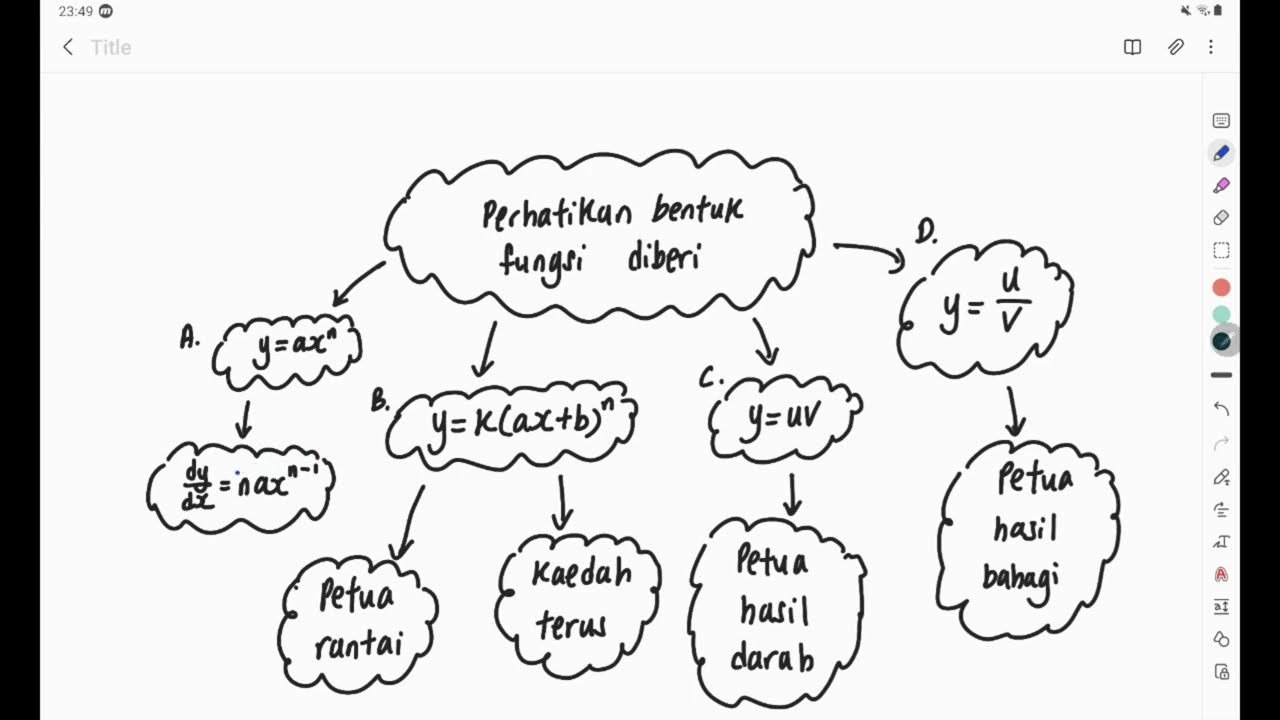 23:49
Title
Perhatikan bentuk
fungsi diberi
A.
y=axⁿ
dy/dx = naxⁿ⁻¹
B.
y=K(ax+b)ⁿ
Petua
rantai
Kaedah
terus
C.
y=uv
Petua
hasil
darab
D.
y=u/v
Petua
hasil
bahagi